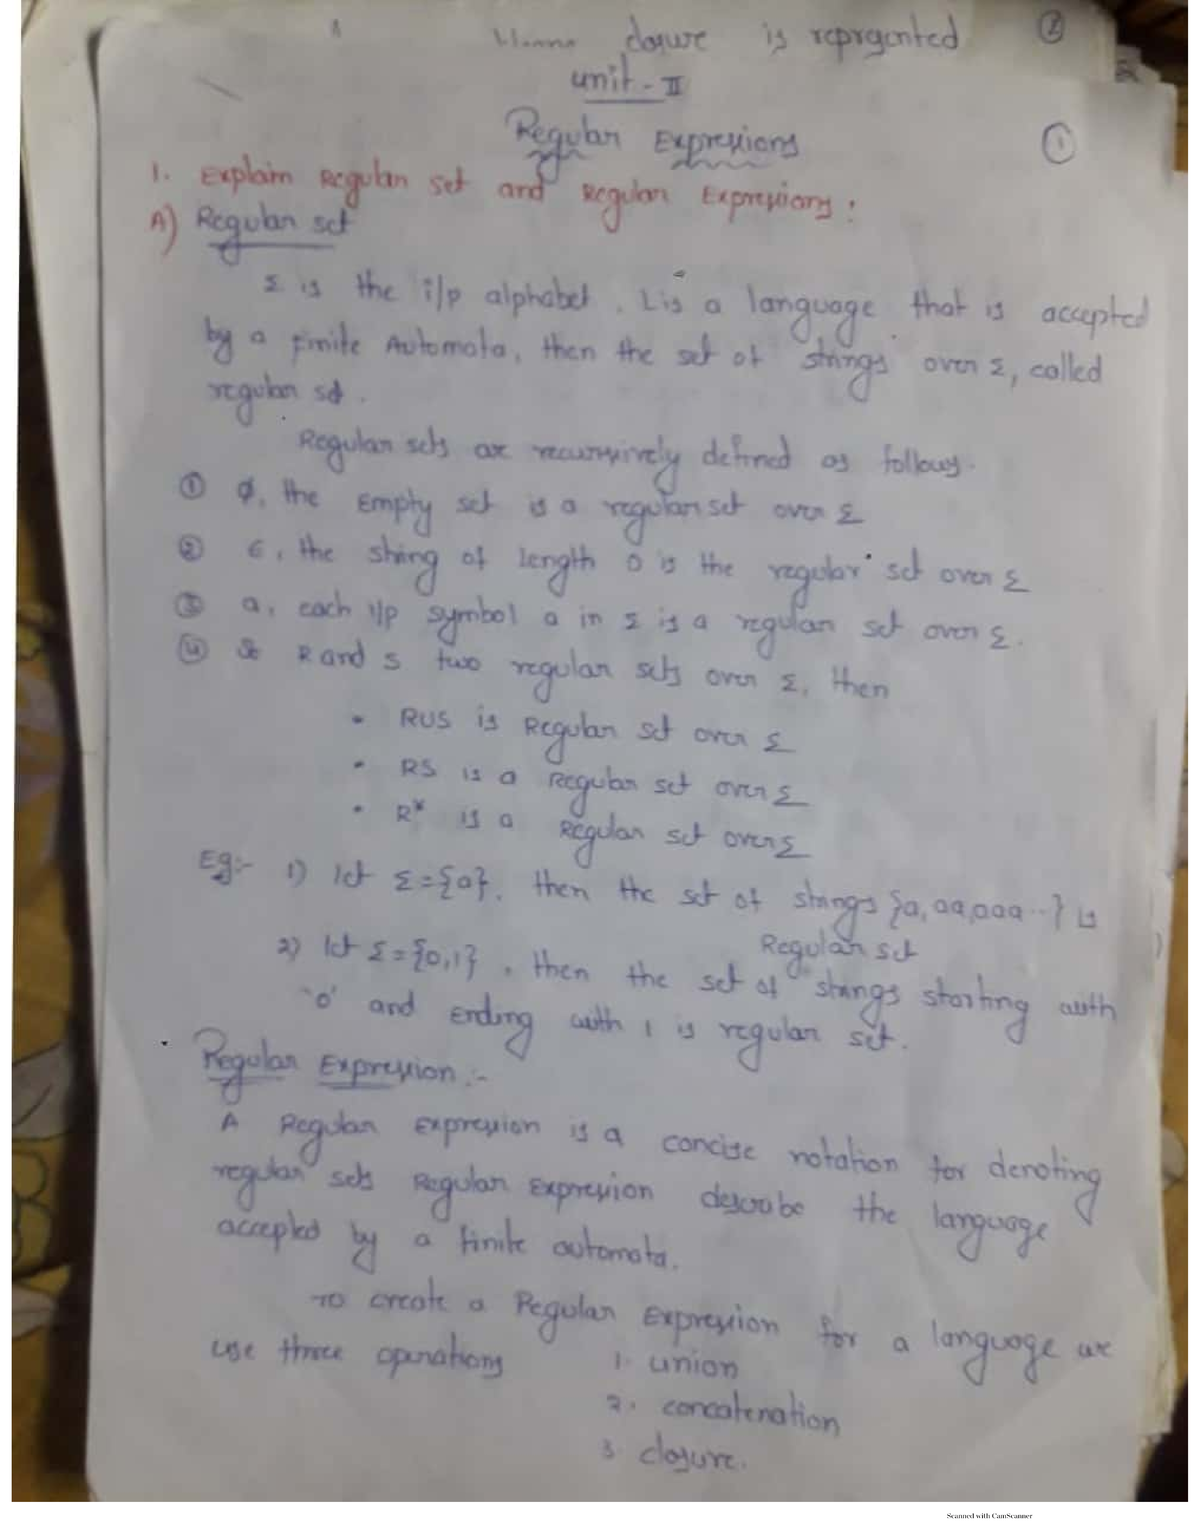 closure is represented ②
unit - II
Regular Expressions ①
1. Explain Regular set and Regular Expressions :
A) Regular set
Σ is the i/p alphabet. L is a language that is accepted
by a Finite Automata, then the set of strings over Σ, called
regular set.
Regular sets are recursively defined as follows.
① ∅, the Empty set is a regular set over Σ
② ε, the string of length 0 is the regular set over Σ
③ a, each i/p symbol a in Σ is a regular set over Σ.
④ R and S two regular sets over Σ, then
• RUS is Regular set over Σ
• RS is a Regular set over Σ
• R* is a Regular set over Σ
Eg:- 1) let Σ={a}, then the set of strings {a, aa, aaa ..} is
Regular set
2) let Σ={0,1}, then the set of strings starting with
'0' and Ending with 1 is regular set.
Regular Expression :-
A Regular Expression is a concise notation for denoting
regular sets Regular Expression describe the language
accepted by a finite automata.
To create a Regular Expression for a language we
use three operations 1. union
2. concatenation
3 closure.
Scanned with CamScanner